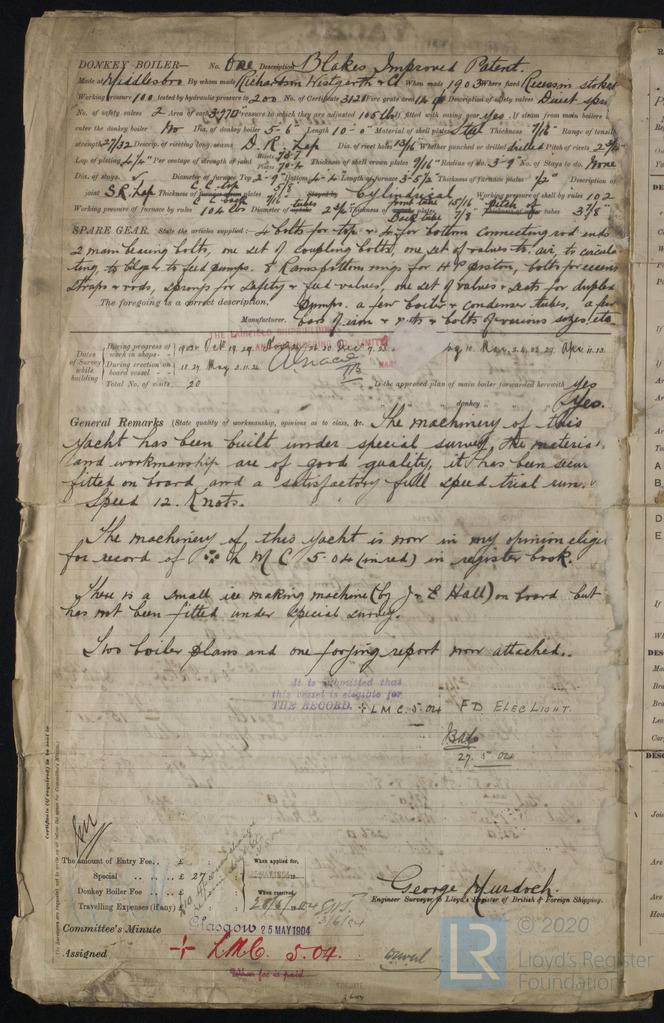 DONKEY BOILER— No. One Description Blakes Improved Patent.
Made at Middlesbro By whom made Richardson Westgarth & Co When made 1903 Where fixed Recess in stokeh
Working pressure 100 tested by hydraulic pressure to 200 No. of Certificate 3121 Fire grate area Description of safety valves Direct spri
No. of safety valves 2 Area of each 3.970 Pressure to which they are adjusted 105 lbs If fitted with easing gear yes If steam from main boilers
enter the donkey boiler No Dia. of donkey boiler 5-6 Length 10-0 Material of shell plates Steel Thickness 9/16 Range of tensile
strength 27/32 Descrip. of riveting long. seams D. R. Lap Dia. of rivet holes 13/16 Whether punched or drilled drilled Pitch of rivets
Lap of plating 4 1/4 Per centage of strength of joint Rivets 70.7 Plates 70.4 Thickness of shell crown plates 9/16 Radius of do. 3-9 No. of Stays to do. None
Dia. of stays. Diameter of furnace Top 2-9 Bottom 4-4 Length of furnace 3-5 1/2 Thickness of furnace plates 1/2 Description of
joint S.R. Lap Thickness of C.C. top 5/8 plates C.C. back 9/16 Stayed by Cylindrical Working pressure of shell by rules 102
Working pressure of furnace by rules 104 lbs Diameter of tubes 2 3/4 Thickness of front tube 15/16 Back tube 7/8 plates Pitch of tubes 3 7/8
SPARE GEAR. State the articles supplied:— 4 bolts for top & 4 for bottom connecting rod ends
2 main bearing bolts, one set of coupling bolts, one set of valves to air, to circula
ting, to bilge & to feed pumps. 8 Ramsbottom rings for H P piston, bolts for eccentric
straps & rods, springs for safety & feed valves, one set of valves & seats for duplex
pumps. a few boiler & condenser tubes, a few
The foregoing is a correct description,
bars of iron & nuts & bolts of various sizes, etc
Manufacturer.
Dates of Survey while building
During progress of work in shops--
During erection on board vessel---
Total No. of visits 20
Is the approved plan of main boiler forwarded herewith yes
" " " donkey " " " yes.
General Remarks (State quality of workmanship, opinions as to class, &c. The machinery of this
yacht has been built under special survey, the material
and workmanship are of good quality, it has been secur
fitted on board and a satisfactory full speed trial run.
Speed 12 Knots.
The machinery of this yacht is now in my opinion eligi
for record of ✠ L M C 5.04 (in red) in register book.
There is a small ice making machine (by J & E Hall) on board but
has not been fitted under special survey.
Two boiler plans and one forging report now attached.
It is submitted that
this vessel is eligible for
THE RECORD. + L M C 5.04 FD ELEC LIGHT.
27.5.04
Certificate (if required) to be sent to
The amount of Entry Fee.. £ : : When applied for,
Special .. .. £ 27 : :
Donkey Boiler Fee .. .. £ : : When received,
Travelling Expenses (if any) £
George Murdoch.
Engineer Surveyor to Lloyd's Register of British & Foreign Shipping.
Committee's Minute Glasgow 25 MAY 1904
Assigned + LMC 5.04.
When fee is paid
© 2020
LR Lloyd's Register
Foundation